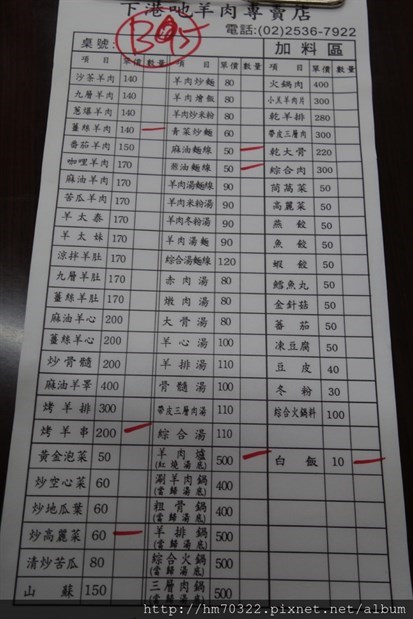 下港吔羊肉專賣店
電話:(02)2536-7922
桌號: B05 加料區
項目 單價 數量 項目 單價 數量 項目 單價 數量
沙茶羊肉 140 羊肉炒麵 80 火鍋肉 400
九層羊肉 140 羊肉燴飯 80 小羔羊肉片 300
蔥爆羊肉 140 羊肉炒米粉 80 乾羊排 280
薑絲羊肉 140 青菜炒麵 60 帶皮三層肉 300
番茄羊肉 150 麻油麵線 50 乾大骨 220
咖哩羊肉 170 煎油麵線 50 綜合肉 300
麻油羊肉 170 羊肉湯麵線 90 茼萵菜 50
苦瓜羊肉 170 羊肉米粉湯 90 高麗菜 50
羊大泰 170 羊肉冬粉湯 90 燕餃 50
羊大妹 170 羊肉湯麵 90 魚餃 50
涼拌羊肚 170 綜合湯麵線 120 蝦餃 50
九層羊肚 170 赤肉湯 80 鱈魚丸 50
薑絲羊肚 170 燉肉湯 80 金針菇 50
麻油羊心 200 大骨湯 80 蕃茄 50
薑絲羊心 200 羊心湯 100 凍豆腐 50
炒骨髓 200 羊排湯 110 豆皮 40
麻油羊睪 400 骨髓湯 100 冬粉 30
烤羊排 300 帶皮三層肉湯 110 綜合火鍋料 100
烤羊串 200 綜合湯 110
黃金泡菜 50 羊肉爐 (紅燒湯底) 500 白飯 10
炒空心菜 60 涮羊肉鍋 (當歸湯底) 400
炒地瓜葉 60 粗骨鍋 (當歸湯底) 400
炒高麗菜 60 羊排鍋 (當歸湯底) 500
清炒苦瓜 80 綜合火鍋 (當歸湯底) 500
山蘇 150 三層肉鍋 (當歸湯底) 500
http://hm70322.pixnet.net/album